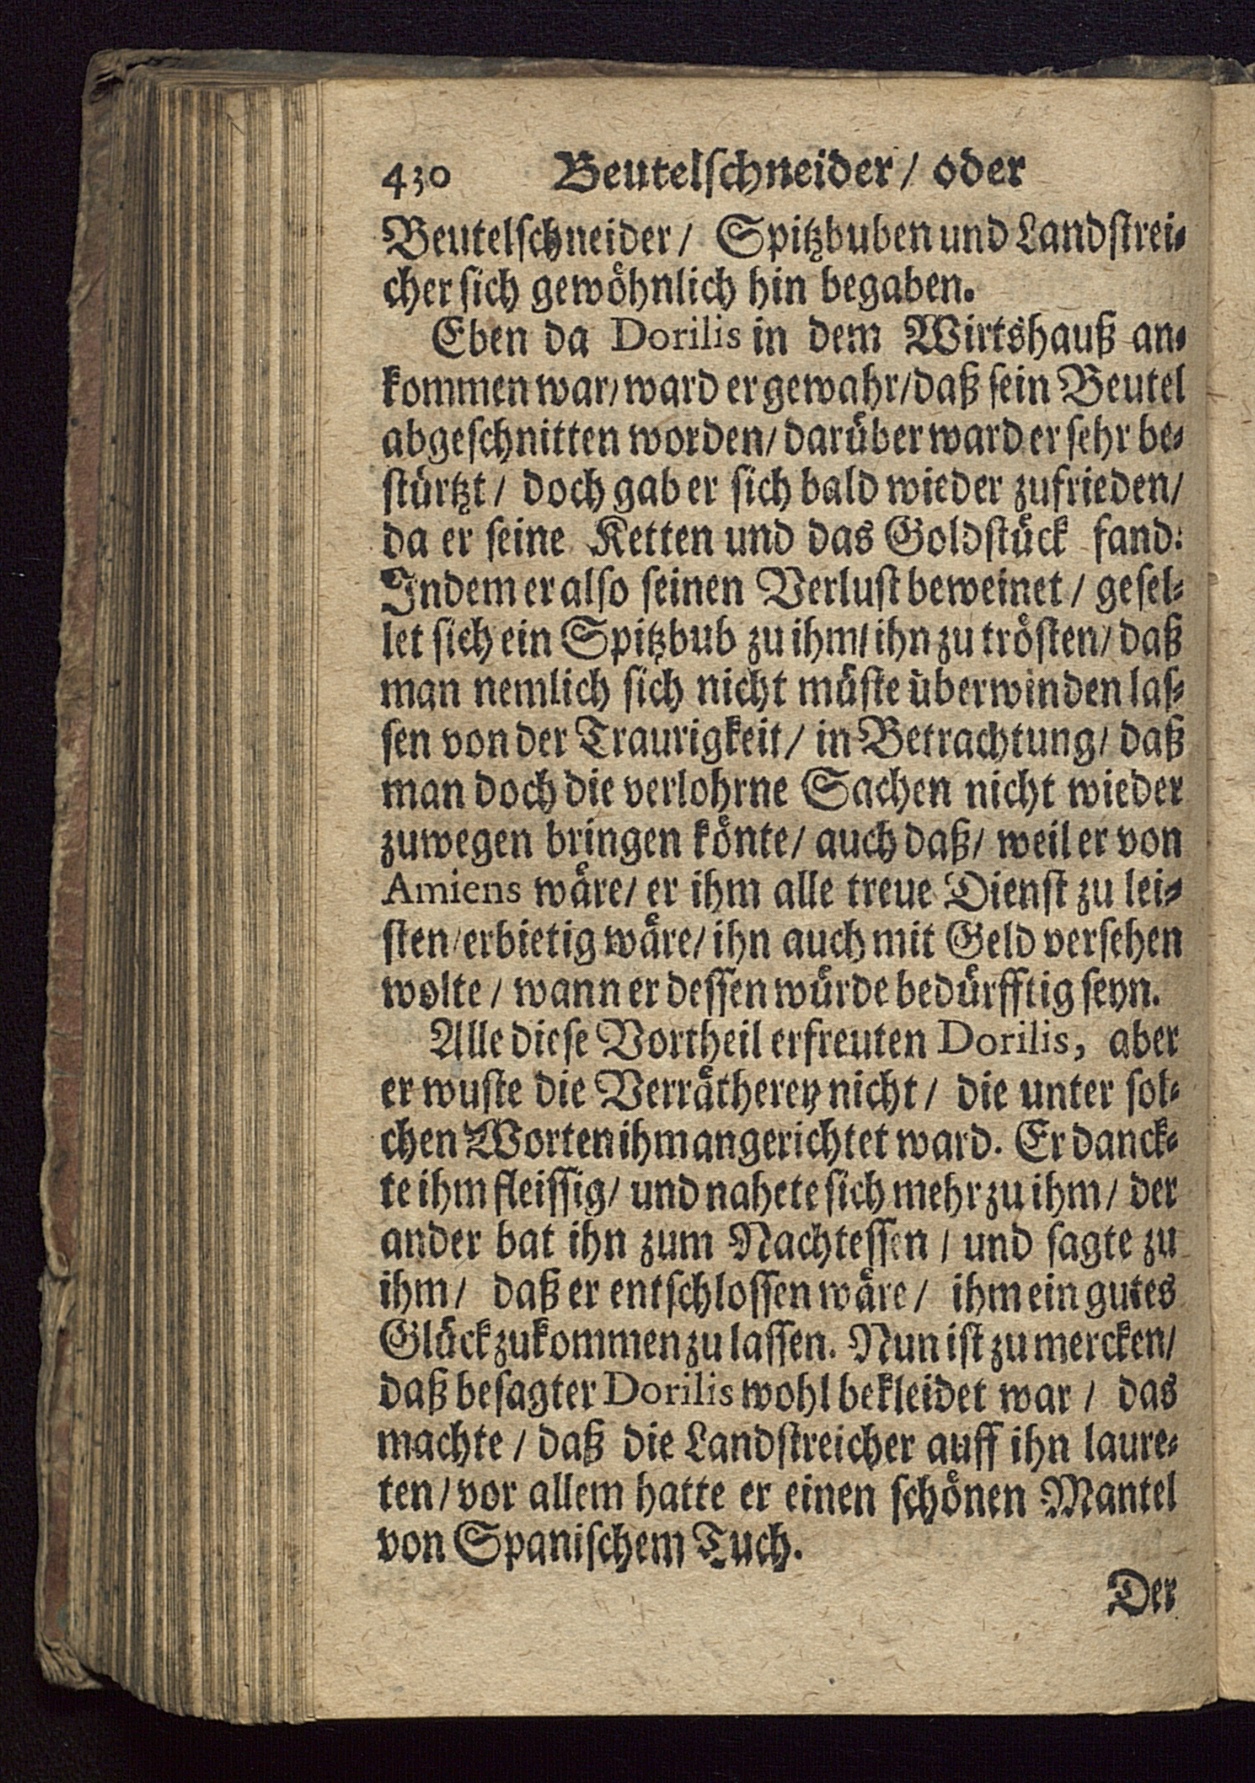 430 Beutelſchneider / oder
Beutelſchneider / Spitzbuben und Landſtrei-
cher ſich gewoͤhnlich hin begaben.
Eben da Dorilis in dem Wirtshauß an-
kommen war / ward er gewahr / daß ſein Beutel
abgeſchnitten worden / daruͤber ward er ſehr be-
ſtuͤrtzt / doch gab er ſich bald wieder zufrieden /
da er ſeine Ketten und das Goldſtuͤck fand:
Indem er alſo ſeinen Verluſt beweinet / geſel-
let ſich ein Spitzbub zu ihm / ihn zu troͤſten / daß
man nemlich ſich nicht muͤſte uͤberwinden laſ-
ſen von der Traurigkeit / in Betrachtung / daß
man doch die verlohrne Sachen nicht wieder
zuwegen bringen koͤnte / auch daß / weil er von
Amiens waͤre / er ihm alle treue Dienſt zu lei-
ſten / erbietig waͤre / ihn auch mit Geld verſehen
wolte / wann er deſſen wuͤrde beduͤrfftig ſeyn.
Alle dieſe Vortheil erfreuten Dorilis, aber
er wuſte die Verraͤtherey nicht / die unter ſol-
chen Worten ihm angerichtet ward. Er danck-
te ihm fleiſſig / und nahete ſich mehr zu ihm / der
ander bat ihn zum Nachteſſen / und ſagte zu
ihm / daß er entſchloſſen waͤre / ihm ein gutes
Gluͤck zukommen zu laſſen. Nun iſt zu mercken /
daß beſagter Dorilis wohl bekleidet war / das
machte / daß die Landſtreicher auff ihn laure-
ten / vor allem hatte er einen ſchoͤnen Mantel
von Spaniſchem Tuch.
Der